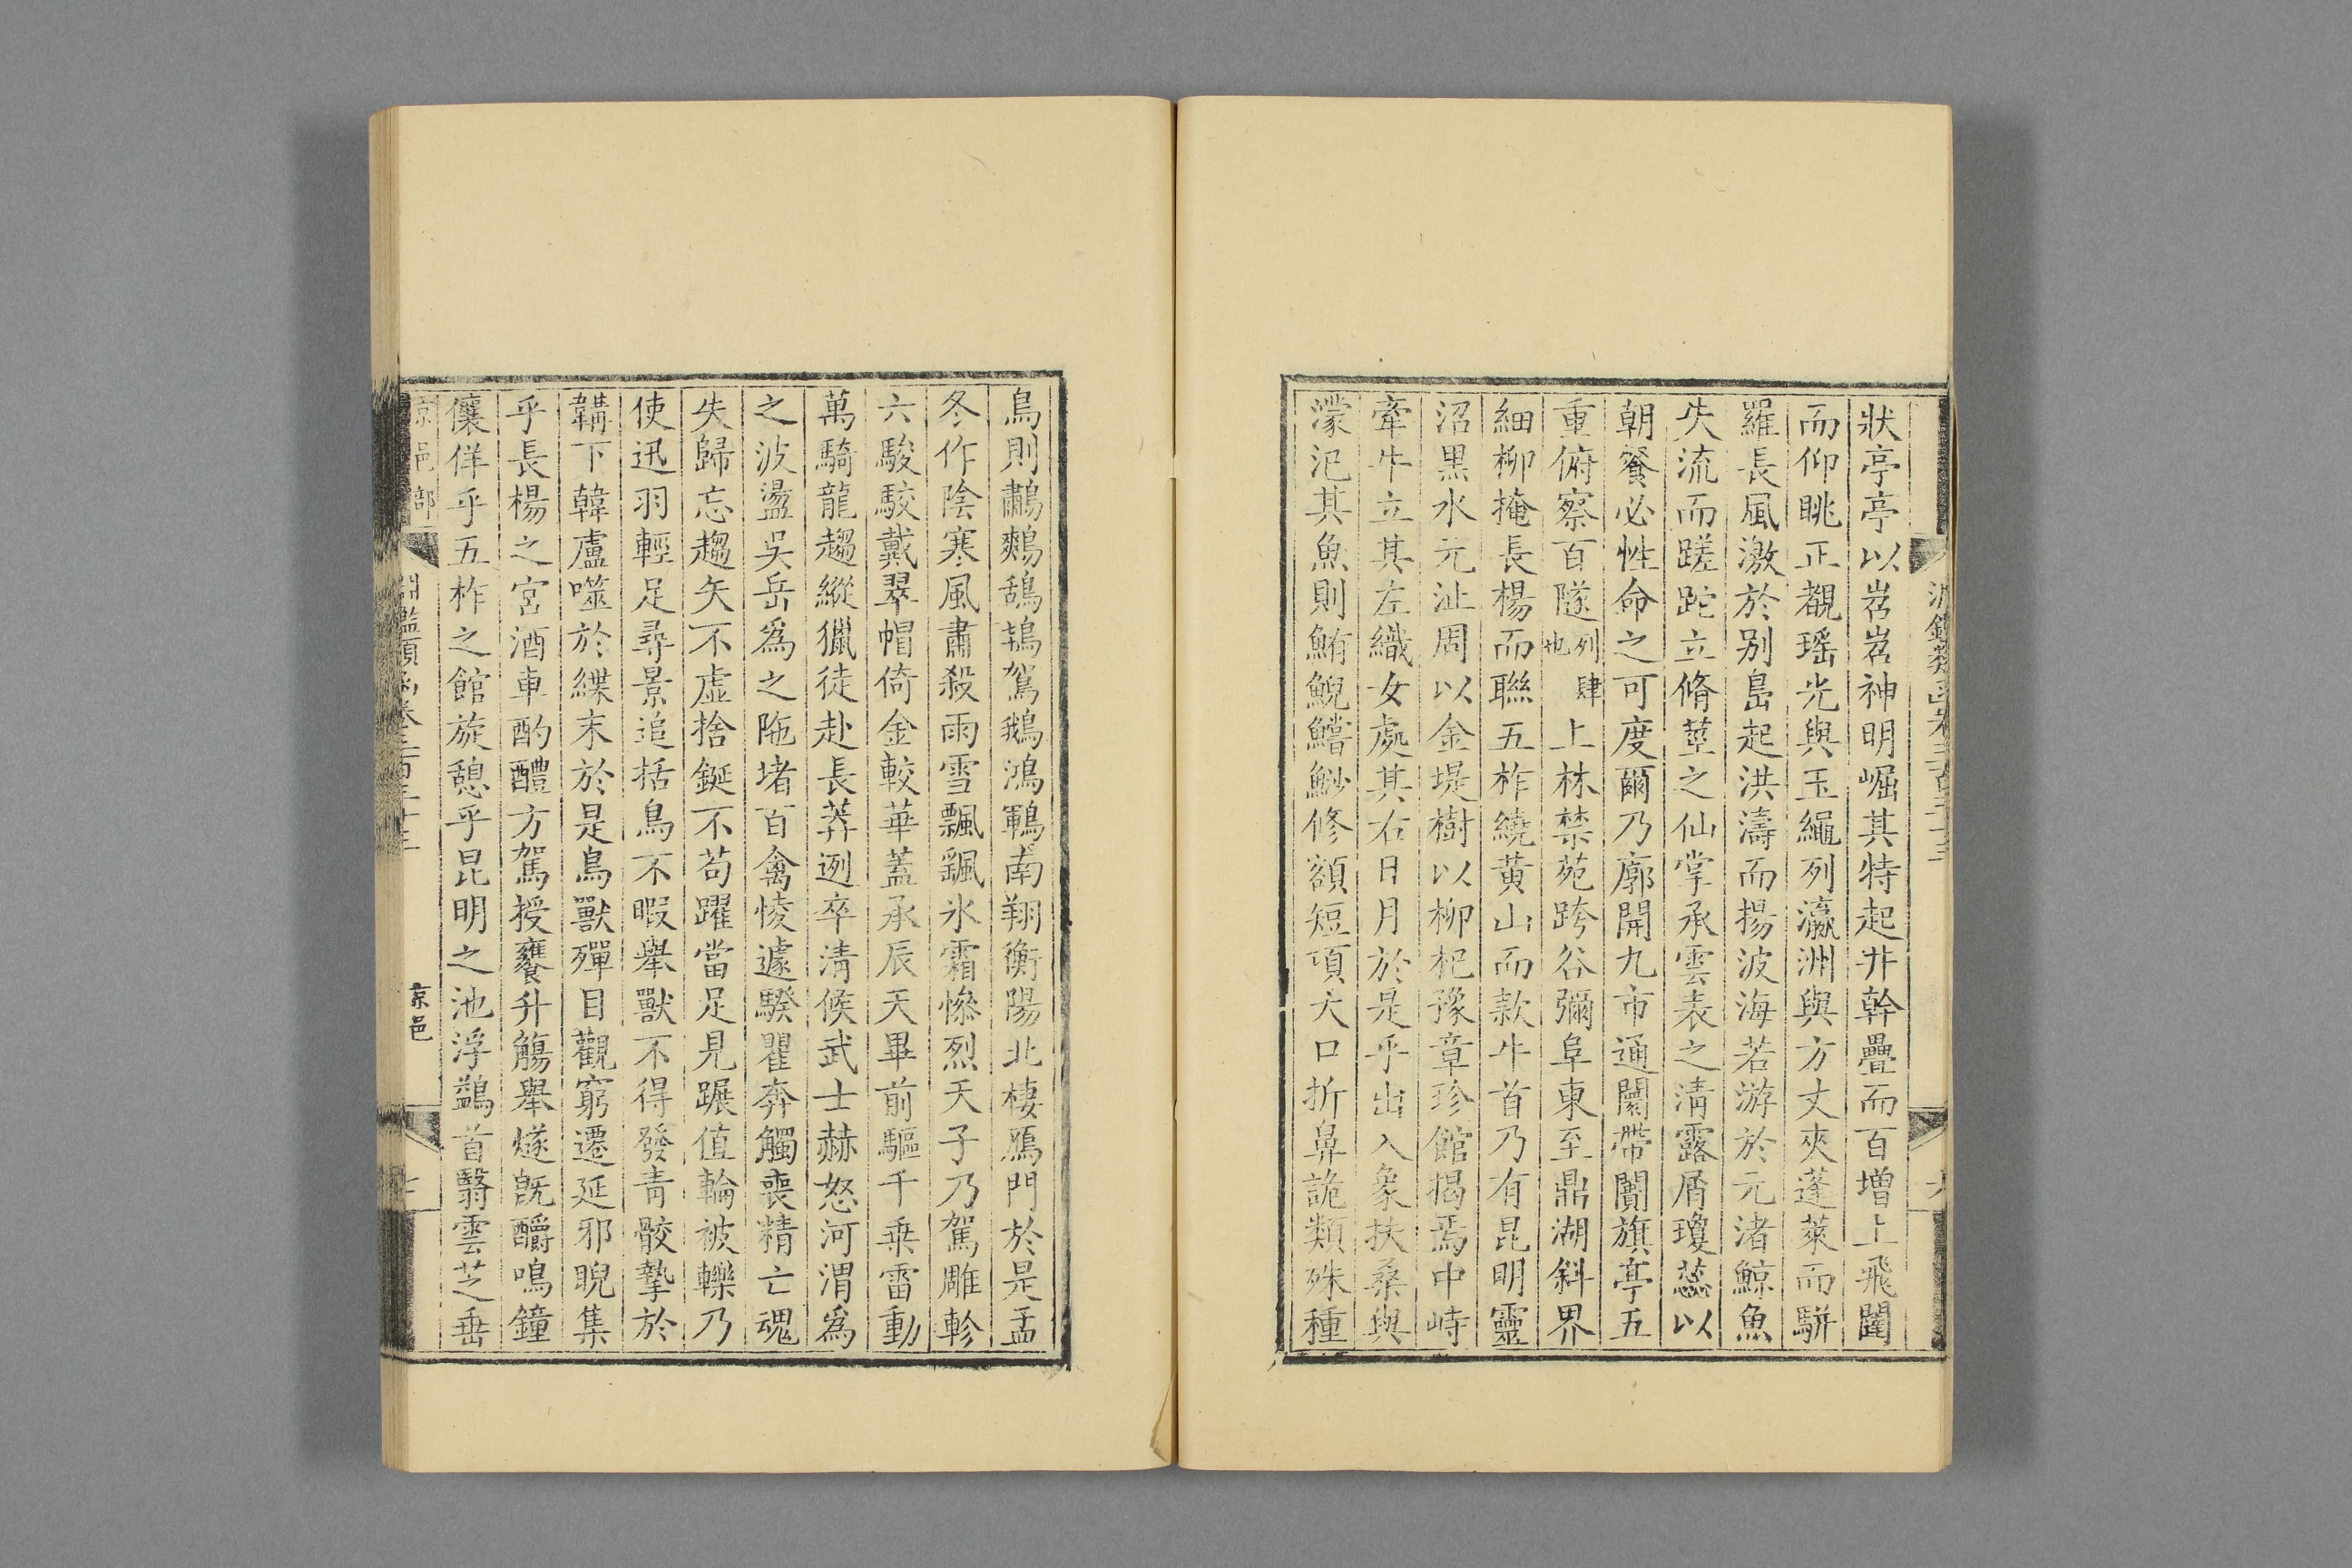 狀亭亭以岧岧神明崛其特起井幹疊而百增上飛闥
而仰眺正覩瑤光與玉繩列瀛洲與方丈夾蓬萊而駢
羅長風激於别島起洪濤而揚波海若游於元渚鯨魚
失流而蹉跎立脩莖之仙掌承雲表之清露屑瓊蕊以
朝餐必性命之可度爾乃廓開九市通闤帶闠旗亭五
重俯察百隧列肆也上林禁苑跨谷彌阜東至鼎湖斜界
細柳掩長楊而聯五柞繞黃山而款牛首乃有昆明靈
沼黑水元沚周以金堤樹以柳杞豫章珍館揭焉中峙
牽牛立其左織女處其右日月於是乎出入象扶桑與
濛汜其魚則鮪鯢鱨魦修額短項大口折鼻詭類殊種
鳥則鷫鷞鴰鴇鴐鵝鴻鶤南翔衡陽北棲鴈門於是孟
冬作陰寒風肅殺雨雪飄颻氷霜慘烈天子乃駕雕軫
六駿駮戴翠帽倚金較華蓋承辰天畢前驅千乗雷動
萬騎龍趨縱獵徒赴長莽迾卒清候武士赫怒河渭爲
之波盪吳岳爲之陁堵百禽㥄遽騤瞿奔觸喪精亡魂
失歸忘趨矢不虛捨鋋不苟躍當足見蹍值輪被轢乃
使迅羽輕足尋景追括鳥不暇舉獸不得發青骹摯於
韝下韓盧噬於緤末於是鳥獸殫目觀窮遷延邪睨集
乎長楊之宮酒車酌醴方駕授饔升觴舉燧旣釂鳴鐘
儴佯乎五柞之館旋憩乎昆明之池浮鷁首翳雲芝垂
京邑部 淵鑑類函卷三百三十三 京邑